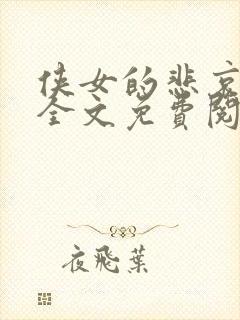 侠女的悲哀
全文免費閱
夜飛葉